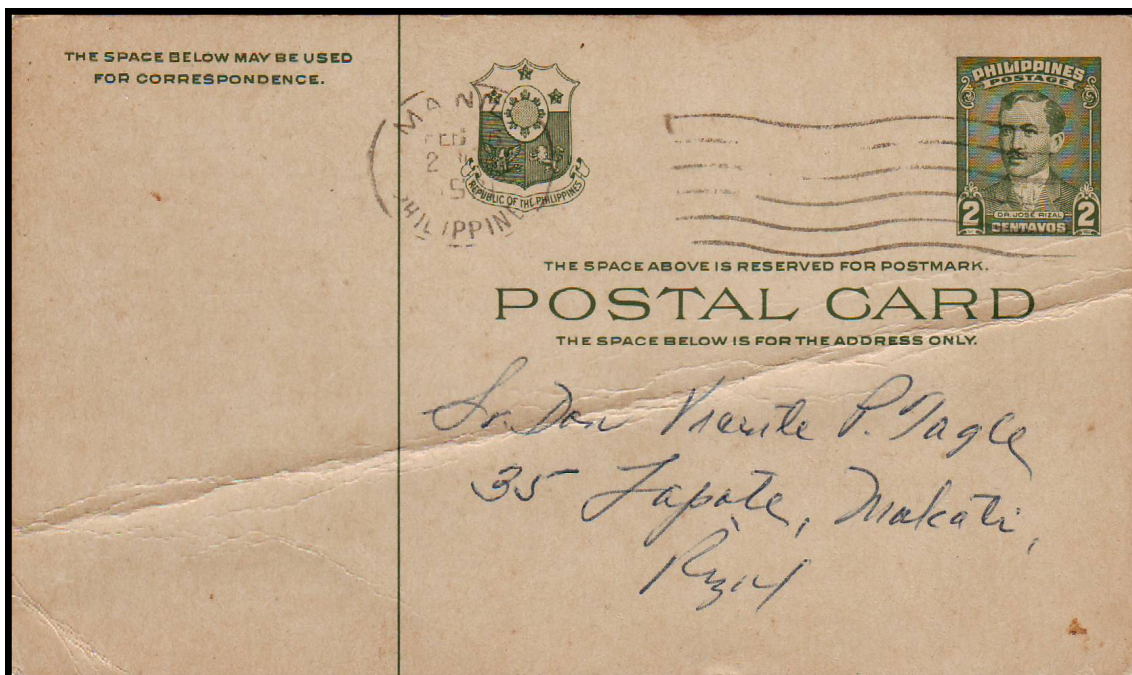 THE SPACE BELOW MAY BE USED
FOR CORRESPONDENCE.
MANILA
FEB
2
PHILIPPINES
REPUBLIC OF THE PHILIPPINES
PHILIPPINES
POSTAGE
2 2
DR. JOSE RIZAL
CENTAVOS
THE SPACE ABOVE IS RESERVED FOR POSTMARK.
POSTAL CARD
THE SPACE BELOW IS FOR THE ADDRESS ONLY.
Sr. Don Vicente P. Tagle
35 Zapote, Makati,
Rizal